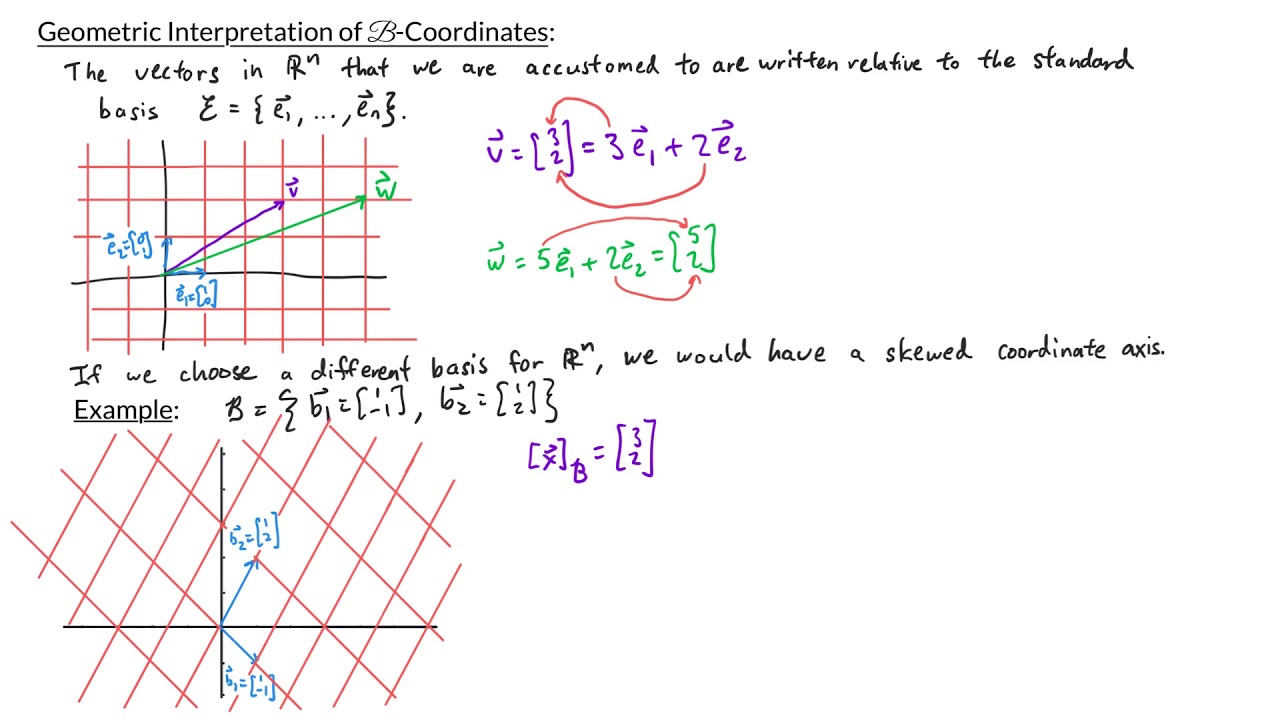 Geometric Interpretation of ℬ-Coordinates:
The vectors in ℝⁿ that we are accustomed to are written relative to the standard
basis ℰ = {e⃗₁, ..., e⃗ₙ}.
v⃗ = [3 2] = 3e⃗₁ + 2e⃗₂
v⃗
w⃗
e⃗₂=[0 1]
e⃗₁=[1 0]
w⃗ = 5e⃗₁ + 2e⃗₂ = [5 2]
If we choose a different basis for ℝⁿ, we would have a skewed coordinate axis.
Example: ℬ = { b⃗₁ = [1 -1], b⃗₂ = [1 2] }
[x⃗]ℬ = [3 2]
b⃗₂=[1 2]
b⃗₁=[1 -1]